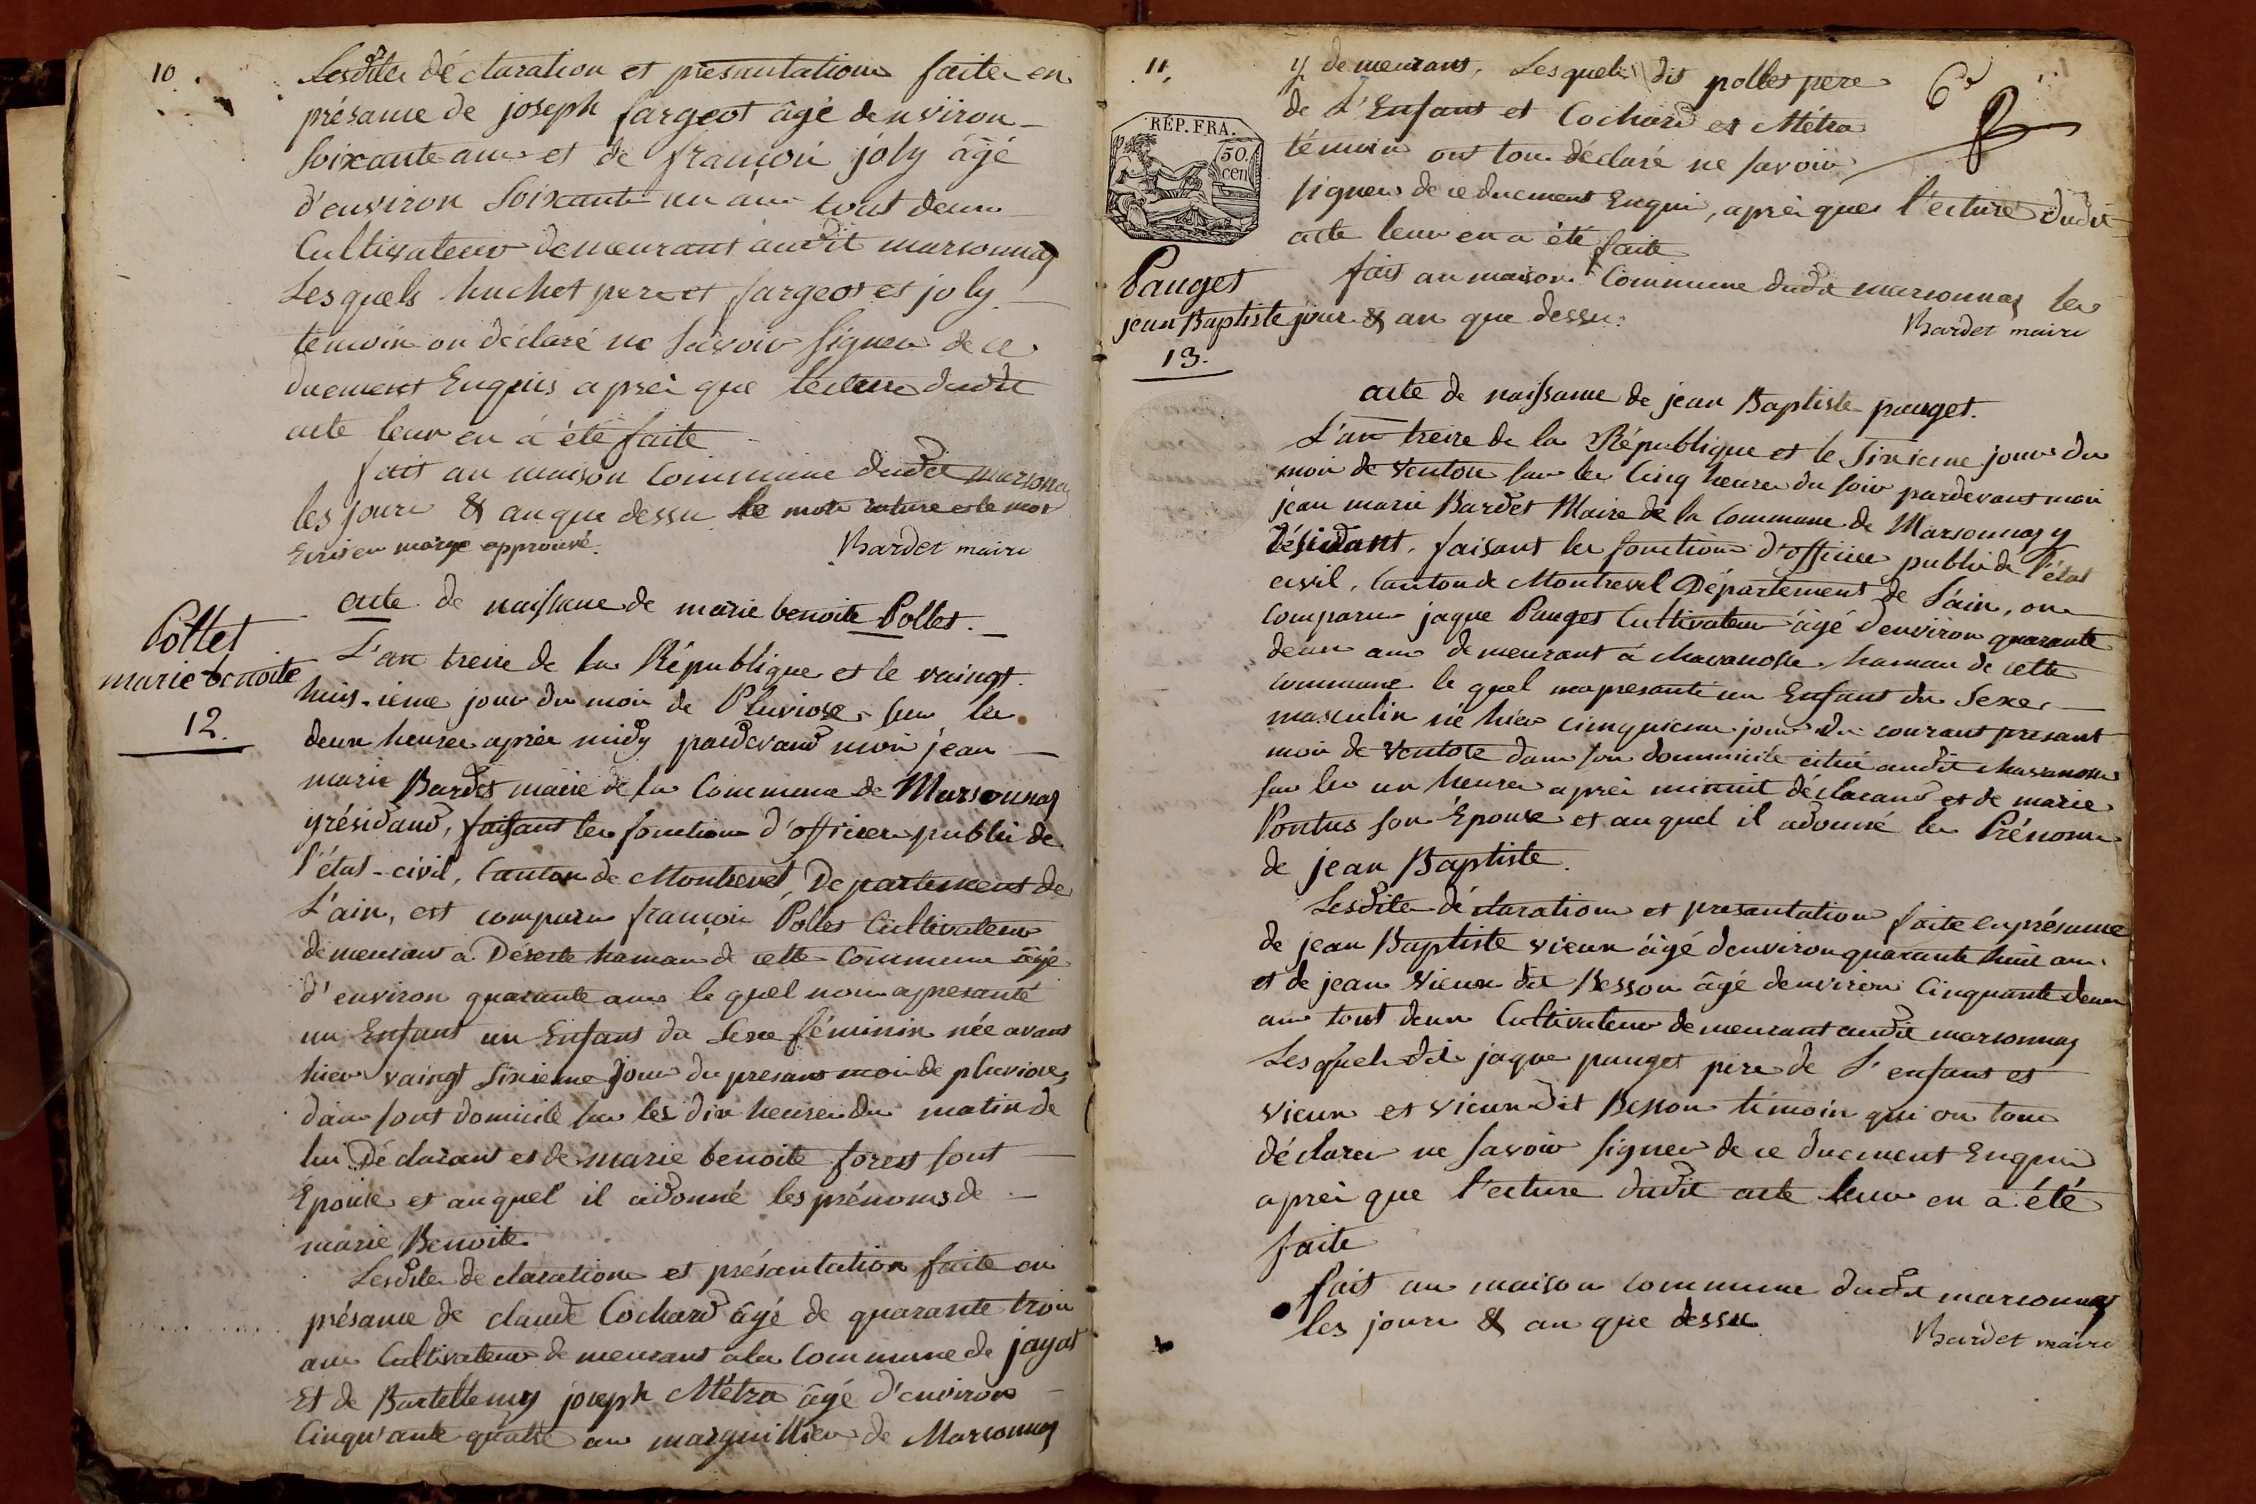 10.
Lesdites déclaration et présantation faite en
présance de joseph fargeot âgé denviron
soixante ans et de françois joly âgé
d'environ Soixante un ans tout deux
Cultivateur demeurant audit marsonnas
Lesquels huchet pere et fargeot et joly
temoin on déclaré ne savoir signer de ce
duement Enquis aprèi que lecture dudit
acte leur en à été faite
fait au maison commune dudit marsonas
les jours & an que dessu le mots rature et le mot
Ecris en marge approuvé.
Bardet maire
Pollet
marie benoite
12.
acte de naissance de marie benoite Pollet.
L'an treize de la République et le vaingt
huit-ieme jour du moi de Pluviose sur les
deux heures après midy pardevand moi jean
marie Bardet maire de la Commune de Marsonnas
y résidand, faisant les fonction d'officier public de
l'état-civil, Canton de Montrevel, Departement de
L'ain, est comparu françois Pollet Cultivateur
demeurant a Déserte hamau de cette Commune âgé
d'environ quarante ans le quel nous a presanté
un Enfant un Enfant du Sexe féminin née avant
hier vaingt Sixieme jour du presant moi de pluviose
dans sont domicile sur les dix heures du matin de
lui Déclarant et de marie benoite forest sont
Epouse et auquel il a donné les prénoms de
marie Benoite.
Lesdites declaration et présantation faite en
présance de claude Cochard âgé de quarante trois
ans Cultivateur demeurant a la Commune de jayat
Et de Bartellemy joseph Métra âgé d'environ
Cinqu'ante quatre ans marguillier de Marsonnas
11.
y demeurant, Lesquels dit pollet pere
de L'Enfant et Cochard et Métra
témoin ont tous déclaré ne savoir
signer de ce duement Enqui, aprèi que l'ecture dudit
acte leur en a été faite
6e
RÉP. FRA.
50.
cen
fait au maison Commune dudit marsonnas les
jour & an que dessu.
Bardet maire
Pauget
jean Baptiste
13.
acte de naissance de jean Baptiste pauget.
L'an treize de la République et le Sixieme jour du
moi de Ventose sur les Cinq heures du soir pardevant moi
jean marie Bardet Maire de la Commune de Marsonnas y
Résidant, faisant les fonction d'officier public de l'état
civil, Canton de Montrevel Département de L'ain, on
comparu jaque Pauget Cultivateur âgé d'environ quarante
deux ans demeurant á chavanosse hamau de cette
commune le quel ma presanté un Enfant du Sexe
masculin né hier cinquieme jour du courant presant
moi de Ventose dans son dommicile citué audit chavanosse
sur les un heures aprèi minuit déclarant et de marie
Pontus son Épouse et auquel il a donné les Prénoms
de jean Baptiste.
Lesdites déclaration et presantation faite en présance
de jean Baptiste vieux âgé d'environ quarante huit ans
et de jean vieux dit Besson âgé denviron Cinquante deux
ans tout deux Cultivateur demeurant audit marsonnas
Lesquels dit jaque pauget pere de L'enfant et
vieux et vieux dit Besson témoin qui on tous
déclarer ne savoir signer de ce duement Enquis
aprèi que l'ecture dudit acte leur en a été
faite
fait au maison commune dudit marsonnas
les jours & an que dessu
Bardet maire